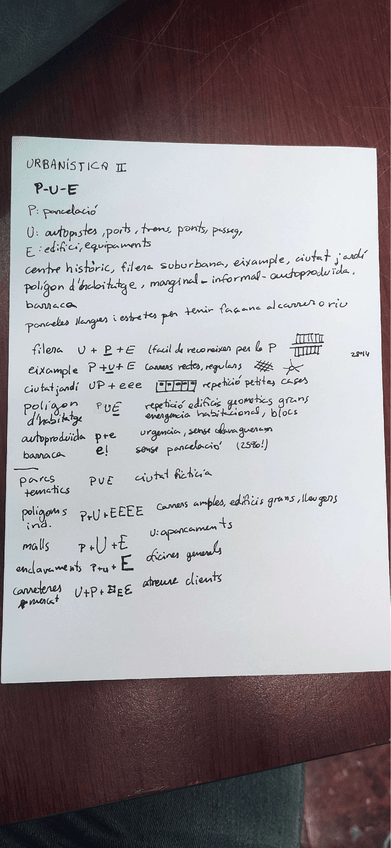 URBANÍSTICA II
P-U-E
P: parcelació
U: autopistes, ports, trens, ponts, passeig,
E: edifici, equipaments
centre històric, filera suburbana, eixample, ciutat jardí
polígon d'habitatge, marginal - informal - autoproduida.
barraca
parceles llargues i estretes per tenir façana al carrer o riu
filera U + P + E (fàcil de reconeixer per la P
eixample P + U + E carrers rectes, regulars 28M14
ciutat jardí UP + eee repetició petites cases
polígon d'habitatge PUE repetició edificis geometrics grans
emergencia habitacional, blocs
autoproduida pre urgencia, sense clavagueram
barraca e! sense parcelació (2580!)
parcs tematics PUE ciutat fictícia
polígons ind. P+U+EEEE Carrers amples, edificis grans, lleugers
malls P+U+E U: aparcaments
enclavaments P+u+E oficines generals
carreteres mercat U+P+EEE atreure clients